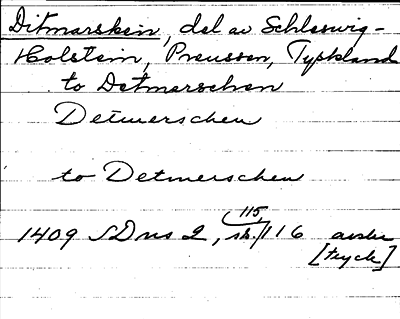 Ditmarsken, del av Schleswig-
Holstein, Preussen, Tyskland
to Detmerschen
Detmerschen
to Detmerschen
115,
1409 SDns 2, s. 116 avskr
[tryck]